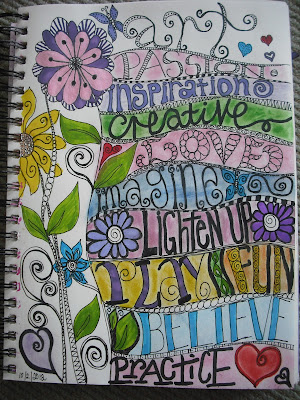 art
PASSION
inspirations
creative
LOVES
imagina
LIGHTEN UP
PLAY FUN
BELIEVE
PRACTICE